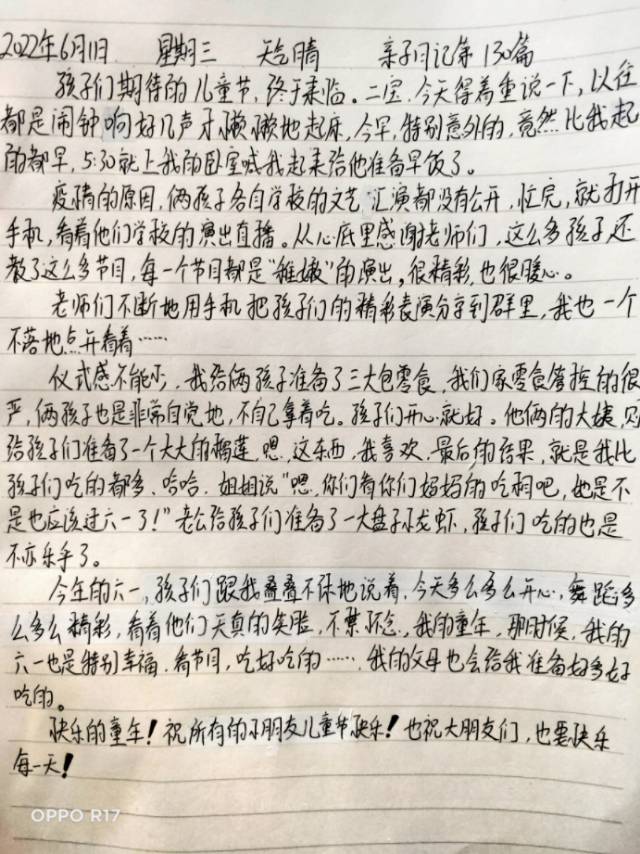 2022年6月1日 星期三 天气晴 亲子日记第130篇
孩子们期待的儿童节,终于来临。二宝,今天得着重说一下,以往
都是闹钟响好几声才懒懒地起床,今早,特别意外的,竟然比我起
的都早,5:30就上我的卧室喊我起来给他准备早饭了。
疫情的原因,俩孩子各自学校的文艺汇演都没有公开,忙完,就打开
手机,看着他们学校的演出直播。从心底里感谢老师们,这么多孩子还
教了这么多节目,每一个节目都是“稚嫩”的演出,很精彩,也很暖心。
老师们不断地用手机把孩子们的精彩表演分享到群里,我也一个
不落地点开看着……
仪式感不能少,我给俩孩子准备了三大包零食,我们家零食管控的很
严,俩孩子也是非常自觉地,不自己拿着吃。孩子们开心就好。他俩的大姨,见
给孩子们准备了一个大大的榴莲,嗯,这东西,我喜欢,最后的结果,就是我比
孩子们吃的都多,哈哈,姐姐说“嗯,你们看你们妈妈的吃相吧,她是不
是也应该过六一了!”老公给孩子们准备了一大盘子小龙虾,孩子们吃的也是
不亦乐乎了。
今年的六一,孩子们跟我叠叠不休地说着,今天多么多么开心,舞蹈多
么多么精彩,看着他们天真的笑脸,不禁怀念,我的童年,那时候,我的
六一也是特别幸福,看节目,吃好吃的……,我的父母也会给我准备好多好
吃的。
快乐的童年!祝所有的小朋友儿童节快乐!也祝大朋友们,也要快乐
每一天!
OPPO R17